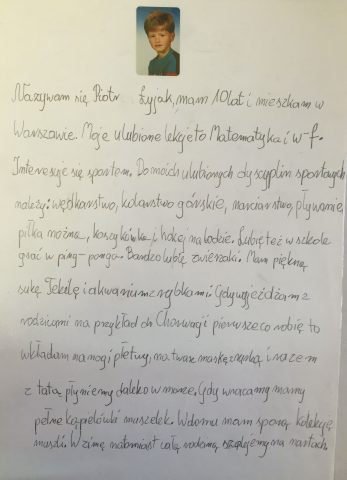 Nazywam się Piotr Łyjak, mam 10 lat i mieszkam w
Warszawie. Moje ulubione lekcje to Matematyka i w-f.
Interesuję się sportem. Do moich ulubionych dyscyplin sportowych
należy: wędkarstwo, kolarstwo górskie, narciarstwo, pływanie,
piłka nożna, koszykówka i hokej na lodzie. Lubię też w szkole
grać w ping-ponga. Bardzo lubię zwierzaki. Mam piękną
sukę Teklę i akwarium z rybkami. Gdy wyjeżdżam z
rodzicami na przykład do Chorwacji pierwsze co robię to
wkładam na nogi płetwy, na twarz maskę z rurką i razem
z tatą płyniemy daleko w morze. Gdy wracamy mamy
pełne kąpielówki muszelek. W domu mam sporą kolekcję
muszli. W zimę natomiast całą rodziną szalejemy na nartach.